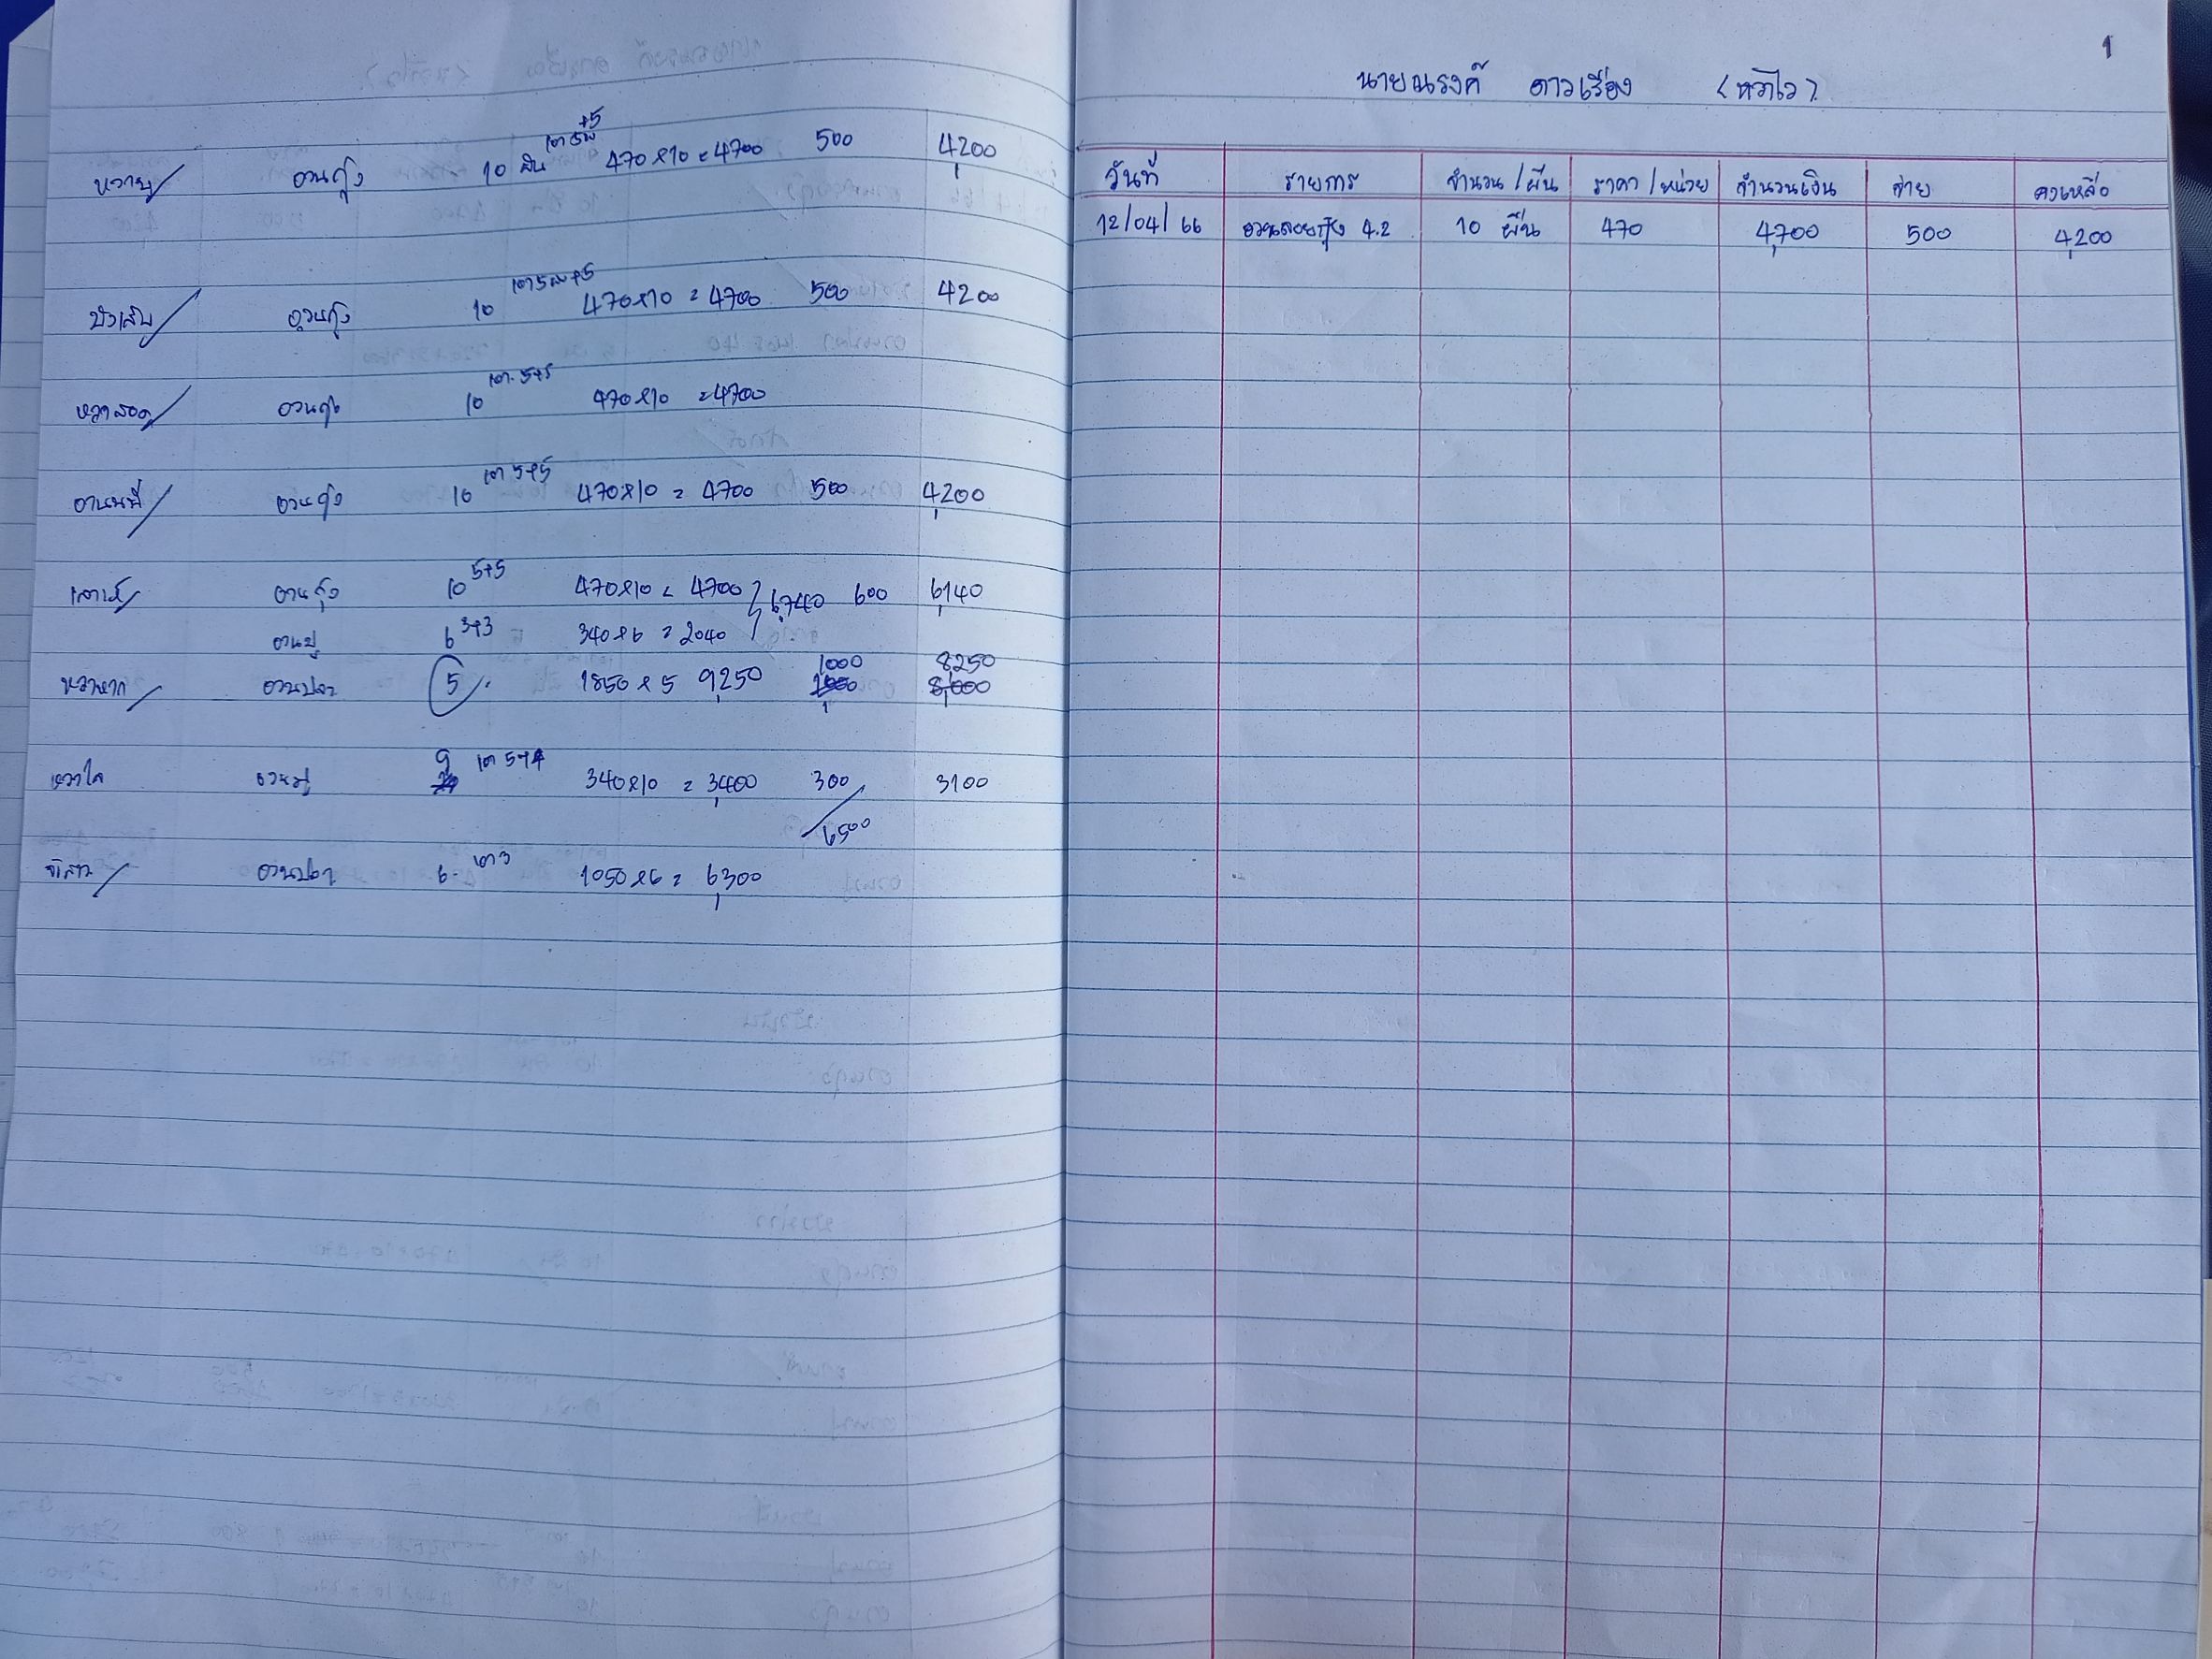 หวาน/ อวนกุ้ง 10 ผืน 470x10 = 4700 500 4,200
บังเส็น/ อวนกุ้ง 10 470x10 = 4700 500 4200
หวาสอด/ อวนกุ้ง 10 เตา 5+5 470x10 = 4700
อานนท์/ อวนกุ้ง 10 เตา 5+5 470x10 = 4700 500 4,200
อวนกุ้ง 10 5+5 470x10 = 4700 } 6,740 600 6,140
อวนปู 6 3+3 340x6 = 2040
อวนปลา 5/. 1850x5 9,250 1000 8250
อวนปู 9 เตา 5+4 340x10 = 3,400 300 3100
/6500
จ๊ะสาว/ อวนปลา 6. เตา 3 1050x6 = 6,300
1
นายณรงค์ ดาวเรือง (หวาโว)
วันที่ รายการ จำนวน/ผืน ราคา/หน่วย จำนวนเงิน จ่าย คงเหลือ
12/04/66 อวนลอยกุ้ง 4.2 10 ผืน 470 4,700 500 4,200